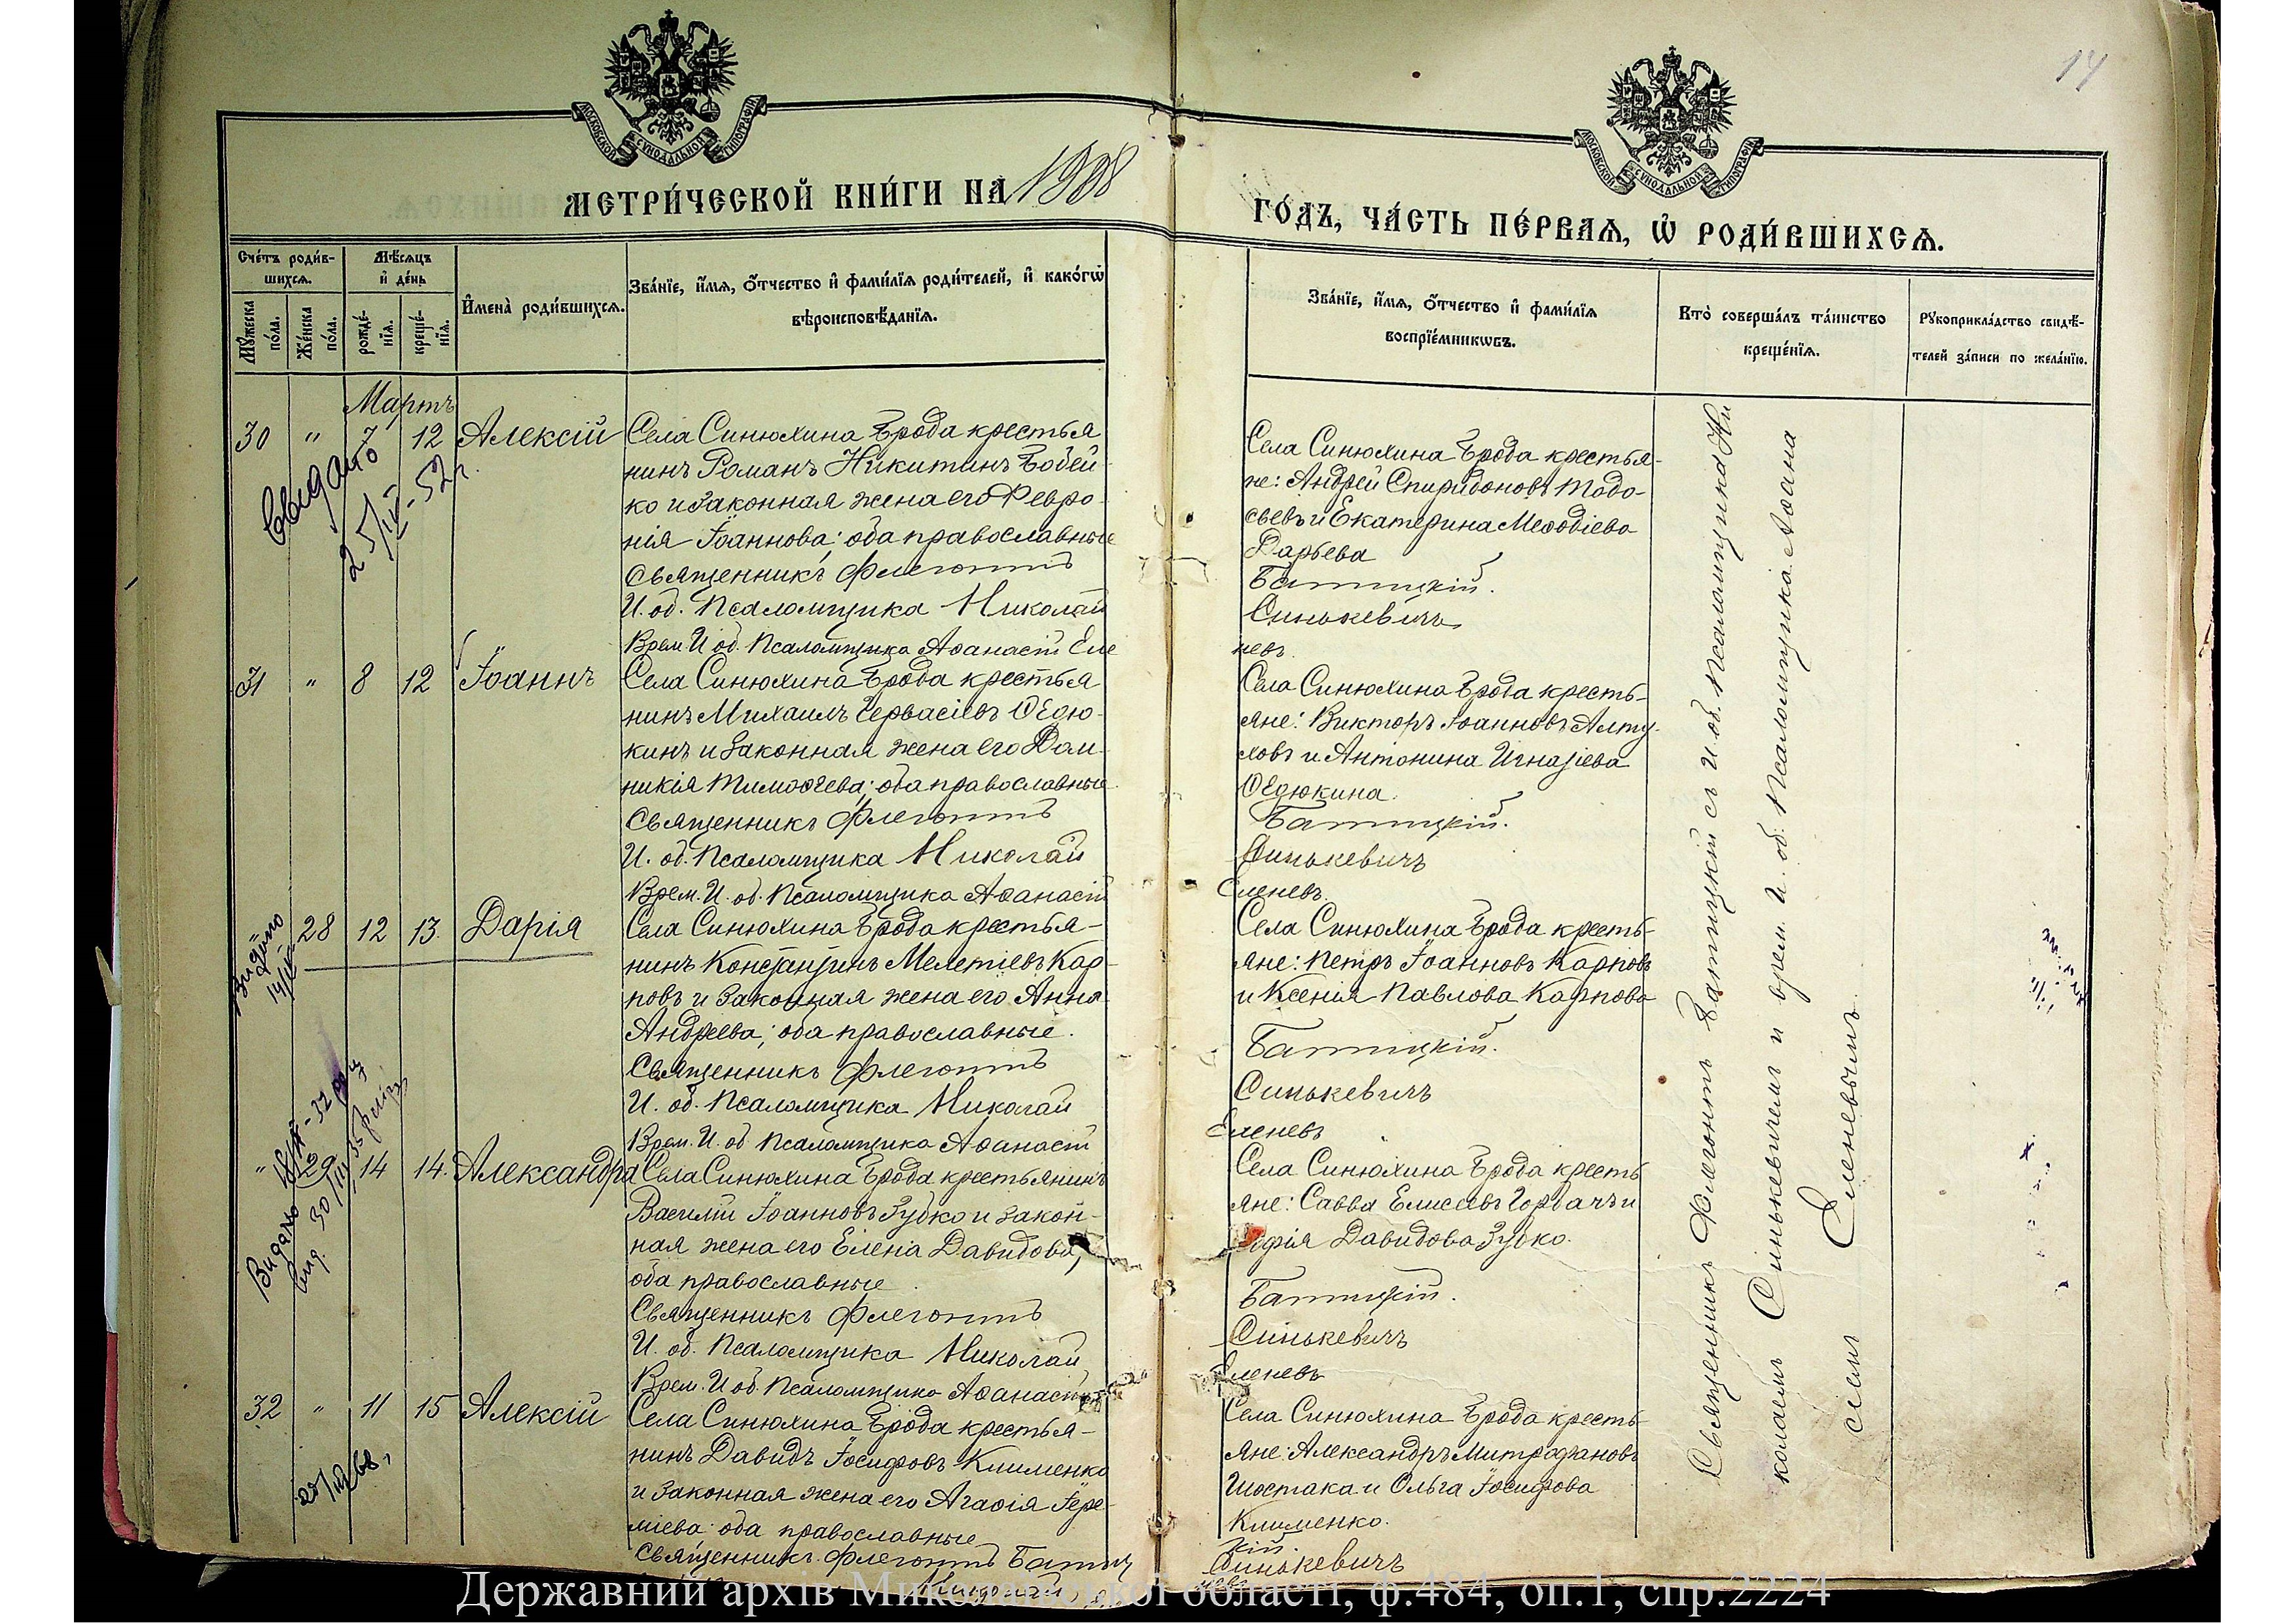 14
МОСКОВСКОЙ СѴНОДАЛЬНОЙ ТИПОГРАФІИ
МОСКОВСКОЙ СѴНОДАЛЬНОЙ ТИПОГРАФІИ
МЕТРИ́ЧЕСКОЙ КНИ́ГИ НА 1908
ГО́ДЪ, ЧА́СТЬ ПЕ́РВАѦ, Ѡ РОДИ́ВШИХСѦ.
Сче́тъ роди́в-
шихсѧ.
Мѣ́сѧцъ
и҆ де́нь
Мꙋ́жеска
по́ла.
Же́нска
по́ла.
рожде́-
нїѧ.
креще́-
нїѧ.
И҆мена̀ роди́вшихсѧ.
Зва́нїе, и҆́мѧ, ѻ҆́тчество и҆ фами́лїѧ роди́телей, и҆ како́гѡ
вѣроисповѣ́данїѧ.
Зва́нїе, и҆́мѧ, ѻ҆́тчество и҆ фами́лїѧ
воспрїе́мникѡвъ.
Кто̀ соверша́лъ та́инство
креще́нїѧ.
Рꙋкоприкла́дство свидѣ́-
телей за́писи по жела́нїю.
Мартъ
30 " 7 12 Алексій Села Синюхина Брода крестья
нинъ Романъ Никитинъ Бобей-
ко и законная жена его Февро-
нія Іоаннова; оба православные
Священникъ Флегонтъ
И. об. Псаломщика Николай
Врем. И об. Псаломщика Аѳанасій Еле
25/IV-52г.
Села Синюхина Брода крестья-
не: Андрей Спиридоновъ Тодо-
сьевъ и Екатерина Меѳодіева
Дарьева
Батицкій.
Синькевичъ
невъ.
31 " 8 12 Іоаннъ Села Синюхина Брода крестья
нинъ Михаилъ Гервасіевъ Ѳедю-
кинъ и законная жена его Дом-
никія Тимоѳеева; оба православные
Священникъ Флегонтъ
И. об. Псаломщика Николай
Врем. И. об. Псаломщика Аѳанасій
Села Синюхина Брода кресть-
яне: Викторъ Іоанновъ Алту-
ховъ и Антонина Игнатіева
Ѳедюкина.
Батицкій.
Синькевичъ
Еленевъ.
" 28 12 13 Дарія Села Синюхина Брода крестья-
нинъ Константинъ Мелетіевъ Кар-
повъ и законная жена его Анна
Андреева; оба православные.
Священникъ Флегонтъ
И. об. Псаломщика Николай
Врем. И. об. Псаломщика Аѳанасій
Села Синюхина Брода кресть-
яне: Петръ Іоанновъ Карповъ
и Ксенія Павлова Карпова
Батицкій.
Синькевичъ
Еленевъ
" 29 14 14. Александра Села Синюхина Брода крестьянинъ
Василій Іоанновъ Зубко и закон-
ная жена его Еленіа Давидова,
оба православные
Священникъ Флегонтъ
И. об. Псаломщика Николай
Врем. И об. Псаломщика Аѳанасій
Села Синюхина Брода кресть
яне: Савва Елисеевъ Горбачъ и
Софія Давидова Зубко.
Батицкій.
Синькевичъ
Еленевъ
32 " 11 15 Алексій Села Синюхина Брода крестья-
нинъ Давидъ Іосифовъ Клименко
и законная жена его Агаѳія Іере-
міева; оба православные
Священникъ Флегонтъ Батиц
Николай
Села Синюхина Брода кресть
яне: Александръ Митрофановъ
Шостака и Ольга Іосифова
Клименко.
кій.
Синькевичъ
Священникъ Флегонтъ Батицкій съ И. об. Псаломщика Ни
колаемъ Синькевичемъ и врем. И. об. Псаломщика Аѳана
сіемъ Еленевымъ.
Державний архів Миколаївської області, ф.484, оп.1, спр.2224